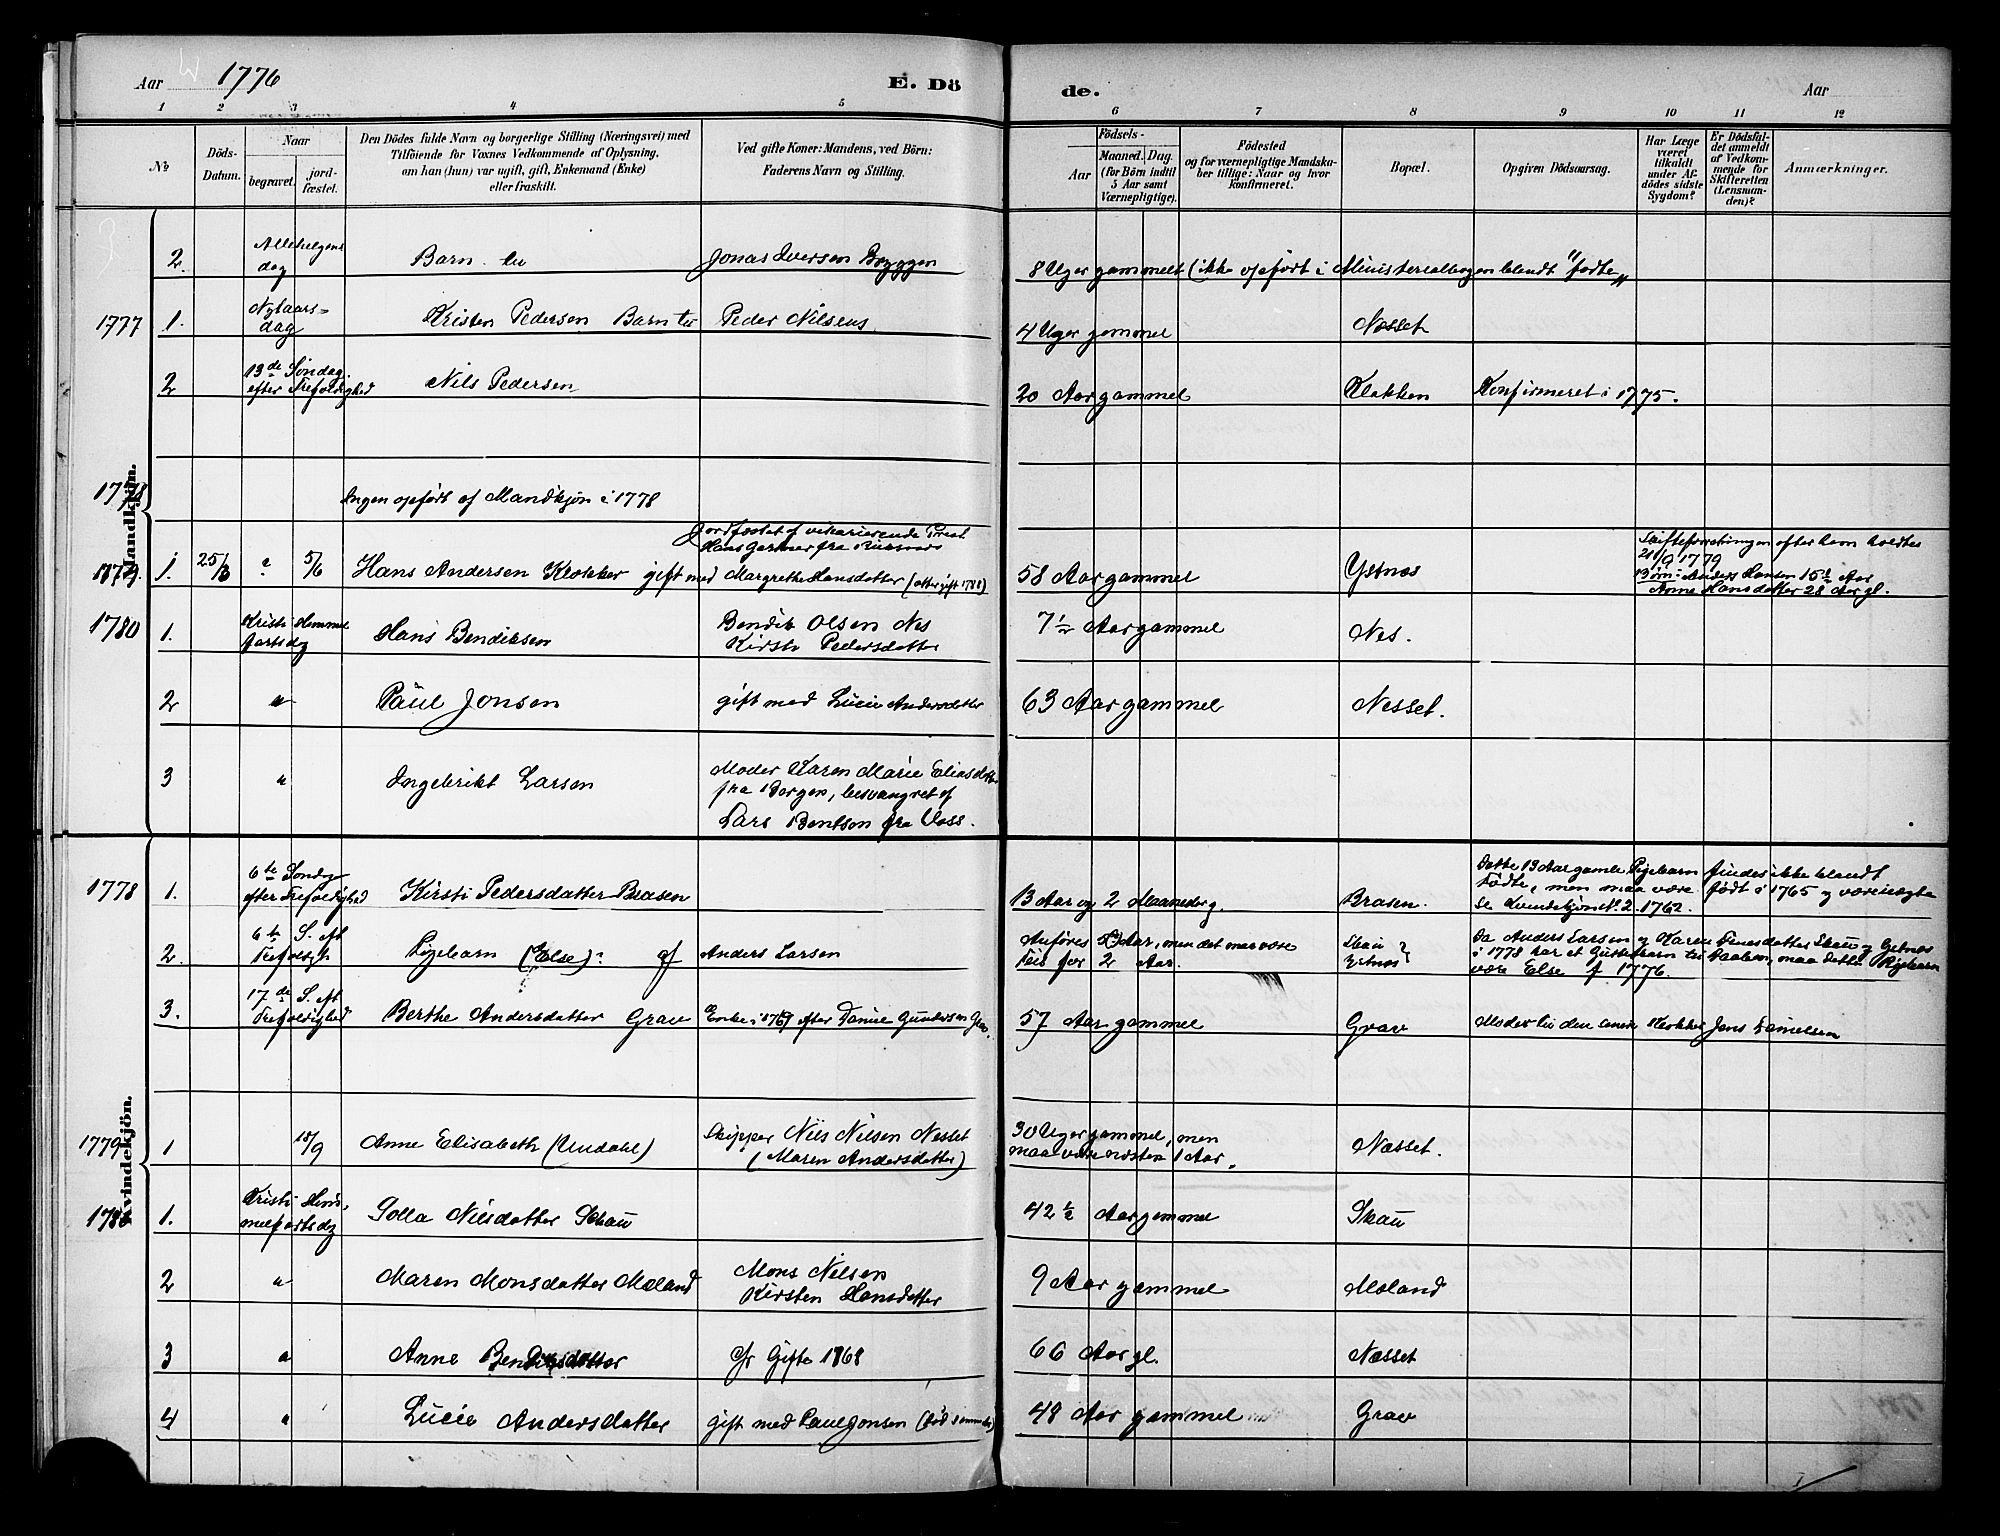 Aar 1776
E. Dö de.
Aar
1 2 3 4 5 6 7 8 9 10 11 12
No
Döds-Datum.
Naar
begravet.
jord-fæstet.
Den Dödes fulde Navn og borgerlige Stilling (Næringsvei) med
Tilföiende for Voxnes Vedkommende af Oplysning,
om han (hun) var ugift, gift, Enkemand (Enke)
eller fraskilt.
Ved gifte Koner: Mandens, ved Börn:
Faderens Navn og Stilling.
Födsels-
Aar
Maaned. Dag.
(for Börn indtil
5 Aar samt
Værnepligtige).
Födested
og for værnepligtige Mandska-
ber tillige: Naar og hvor
konfirmeret.
Bopæl.
Opgiven Dödsaarsag.
Har Læge
været
tilkaldt
under Af-
dödes sidste
Sygdom?
Er Dödsfal-
det anmeldt
af Vedkom-
mende for
Skifteretten
(Lensman-
den)?
Anmærkninger.
Mandkjön.
2. Allehelgens dag Barn til Jonas Iversen Bryggen 8 Uger gammelt (ikke opført i Ministerialbogen blandt "fødte„
1777 1. Nytaars= dag Kristen Pedersen Barn til Peder Nilsens 4 Uger gammel Næsset
2 13de Søndag efter Trefoldighed Nils Pedersen 20 Aar gammel Klokken Konfirmeret i 1775.
1778 Ingen opført af Mandkjøn i 1778
Jordfæstet af vikarierende Prest
Hans fra
1779. 1. 25/3 ? 5/6 Hans Andersen Klokker gift med Margrethe Hansdatter 58 Aar gammel Ystnes
Skifteforretningen efter ham holdtes
21/9 1779
Børn: Anders Hansen 15 Aar
Anne Hansdatter 28 Aar gl.
1780 1. Kristi Himmel fartsdg Hans Bendiksen Bendik Olsen Nes
Kirsti Pedersdatter 7 1/2 Aar gammel Nes.
2 " Paul Jonsen gift med Lucie Andersdatter 63 Aar gammel Nesset.
3 " Ingebrikt Larsen Moder Karen Marie Eliasdatter
fra Bergen, besvangret af
Lars Bentsen fra Voss.
Kvindekjön.
1778 1. 6te Søndg efter Trefoldighed Kirsti Pedersdatter Brasen 13 Aar og 2 Maaneder g. Brasen.
Dette 13 Aar gamle Pigebarn findes ikke blandt
Fødte, men maa være født i 1765 og være
se Kvindekjøn No 2. 1762.
2. 6te S. eft Trefoldigh Pigebarn (Else)? af Anders Larsen
Anføres 50 Aar, men det maa være
Feil for 2 Aar.
Skau?
Ystnes?
Da Anders Larsen og Karen Skau og Ystnes
i 1778 har et til Daaben, maa dette Pigebarn
være Else f 1776.
3. 17de S. eft Trefoldighed Berthe Andersdatter Grav Enke i 1769 efter Daniel Gundersen Grav. 57 Aar gammel Grav Moder til den senere Klokker Jens Danielsen
1779 1 18/9 Anne Elisabeth (Undahl) Skipper Nils Nilsen Nesset
(Maren Andersdatter)
30 Uger gammel, men
maa være næsten 1 Aar.
Næsset.
1780 1. Kristi Him- melfartsdg Solla Nilsdatter Skau 42 1/2 Aar gammel Skau
2 " Maren Monsdatter Moland Mons Nilsen
Kirsten Hansdatter 9 Aar gammel Moland
3 " Anne Bendiksdatter Cfr Gifte 1768 66 Aar gl. Næsset
4 " Lucie Andersdatter gift med Paul Jonsen 48 Aar gammel Grav